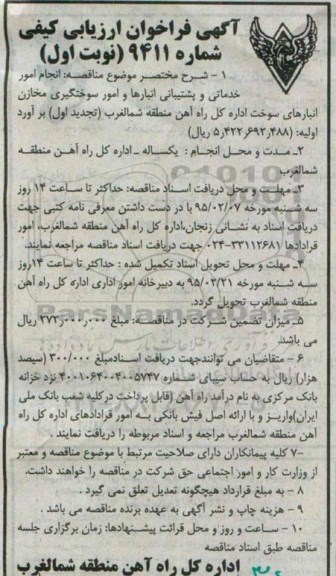 آگهی فراخوان ارزیابی کیفی
شماره ۹۴۱۱ (نوبت اول)
۱ – شرح مختصر موضوع مناقصه: انجام امور
خدماتی و پشتیبانی انبارها و امور سوختگیری مخازن
انبارهای سوخت اداره کل راه آهن منطقه شمالغرب (تجدید اول) بر آورد
اولیه: (۵,۴۲۲,۶۹۲,۴۸۸ ریال)
۲- مدت و محل انجام : یکساله – اداره کل راه آهن منطقه
شمالغرب
۳- مهلت و محل دریافت اسناد مناقصه: حداکثر تا ساعت ۱۴ روز
سه شنبه مورخه ۹۵/۰۲/۰۷ با در دست داشتن معرفی نامه کتبی جهت
دریافت اسناد به نشانی زنجان،اداره کل راه آهن منطقه شمالغرب، امور
قراردادها ۳۳۱۱۲۶۸۱-۰۲۴ جهت دریافت اسناد مناقصه مراجعه نمایند.
۴- مهلت و محل تحویل اسناد تکمیل شده : حداکثر تا ساعت ۱۴روز
سه شنبه مورخه ۹۵/۰۲/۲۱ به دبیرخانه امور اداری اداره کل راه آهن
منطقه شمالغرب تحویل گردد.
۵- میزان تضمین شرکت در مناقصه: مبلغ ۲۷۲,۰۰۰,۰۰۰ ریال
می باشد.
۶ – متقاضیان می توانندجهت دریافت اسنادمبلغ ۳۰۰/۰۰۰ (سیصد
هزار) ریال به حساب سیبای شماره ۴۰۰۱۰۶۴۰۰۴۰۰۵۷۴۷ نزد خزانه
بانک مرکزی به نام درآمد راه آهن (قابل پرداخت درکلیه شعب بانک ملی
ایران)واریز و با ارائه اصل فیش بانکی به امور قراردادهای اداره کل راه
آهن منطقه شمالغرب مراجعه و اسناد مربوطه را دریافت نمایند .
۷- کلیه پیمانکاران دارای صلاحیت مرتبط با موضوع مناقصه و معتبر
از وزارت کار و امور اجتماعی حق شرکت در مناقصه را خواهند داشت.
۸ – به مبلغ قرارداد هیچگونه تعدیل تعلق نمی گیرد .
۹ – هزینه چاپ و نشر آگهی به عهده برنده مناقصه می باشد .
۱۰ – ساعت و روز و محل قرائت پیشنهادها: زمان برگزاری جلسه
مناقصه طبق اسناد مناقصه
اداره کل راه آهن منطقه شمالغرب